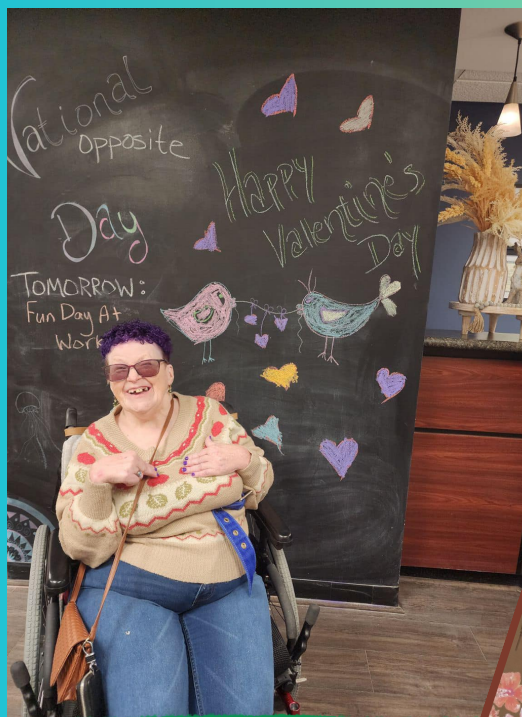 National
Opposite
Day
TOMORROW:
Fun Day At
Work
Happy
Valentine's
Day